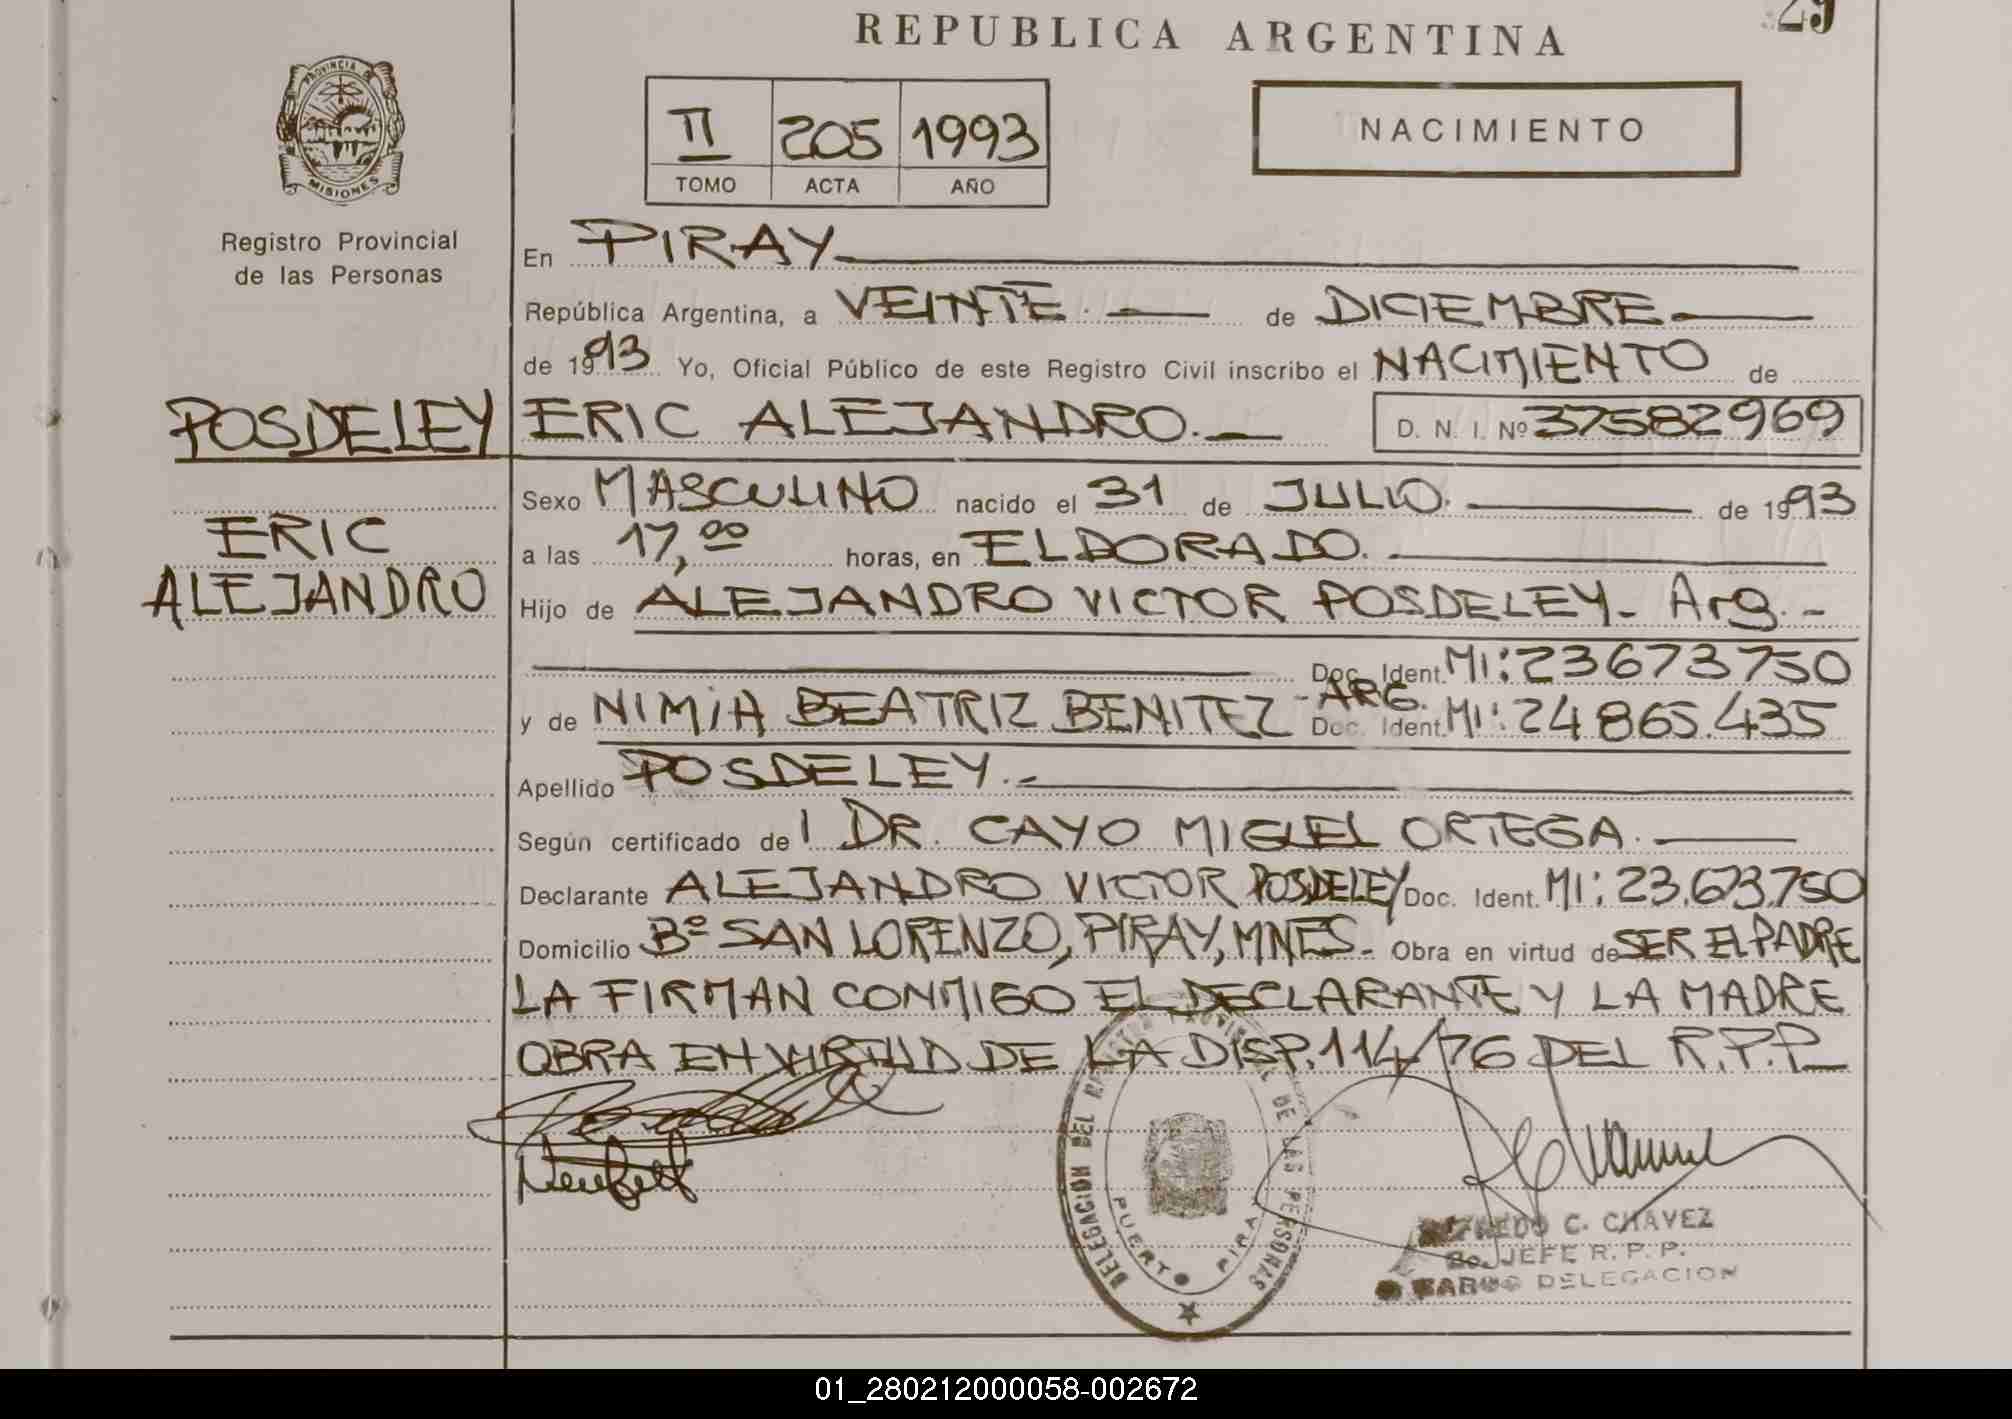 REPUBLICA ARGENTINA
29
PROVINCIA D
MISIONES
Registro Provincial
de las Personas
II 205 1993
TOMO ACTA AÑO
NACIMIENTO
En PIRAY
República Argentina, a VEINTE de DICIEMBRE
de 1993 Yo, Oficial Público de este Registro Civil inscribo el NACIMIENTO de
POSDELEY ERIC ALEJANDRO. D. N. I. Nº 37582969
Sexo MASCULINO nacido el 31 de JULIO. de 1993
ERIC
a las 17,00 horas, en ELDORADO.
ALEJANDRO
Hijo de ALEJANDRO VICTOR POSDELEY - Arg. -
Doc. Ident. MI: 23673750
y de NIMIA BEATRIZ BENITEZ - ARG. Doc. Ident. MI: 24865.435
Apellido POSDELEY.-
Según certificado del DR. CAYO MIGUEL ORTEGA.
Declarante ALEJANDRO VICTOR POSDELEY Doc. Ident. MI: 23.673.750
Domicilio Bº SAN LORENZO, PIRAY, MNES. Obra en virtud de SER EL PADRE
LA FIRMAN CONMIGO EL DECLARANTE Y LA MADRE
OBRA EN VIRTUD DE LA DISP. 114/76 DEL R.P.P.
DELEGACION DEL REGISTRO PROVINCIAL DE LAS PERSONAS
PUERTO PIRAY
ALFREDO C. CHAVEZ
JEFE R. P. P.
DELEGACION
01_280212000058-002672